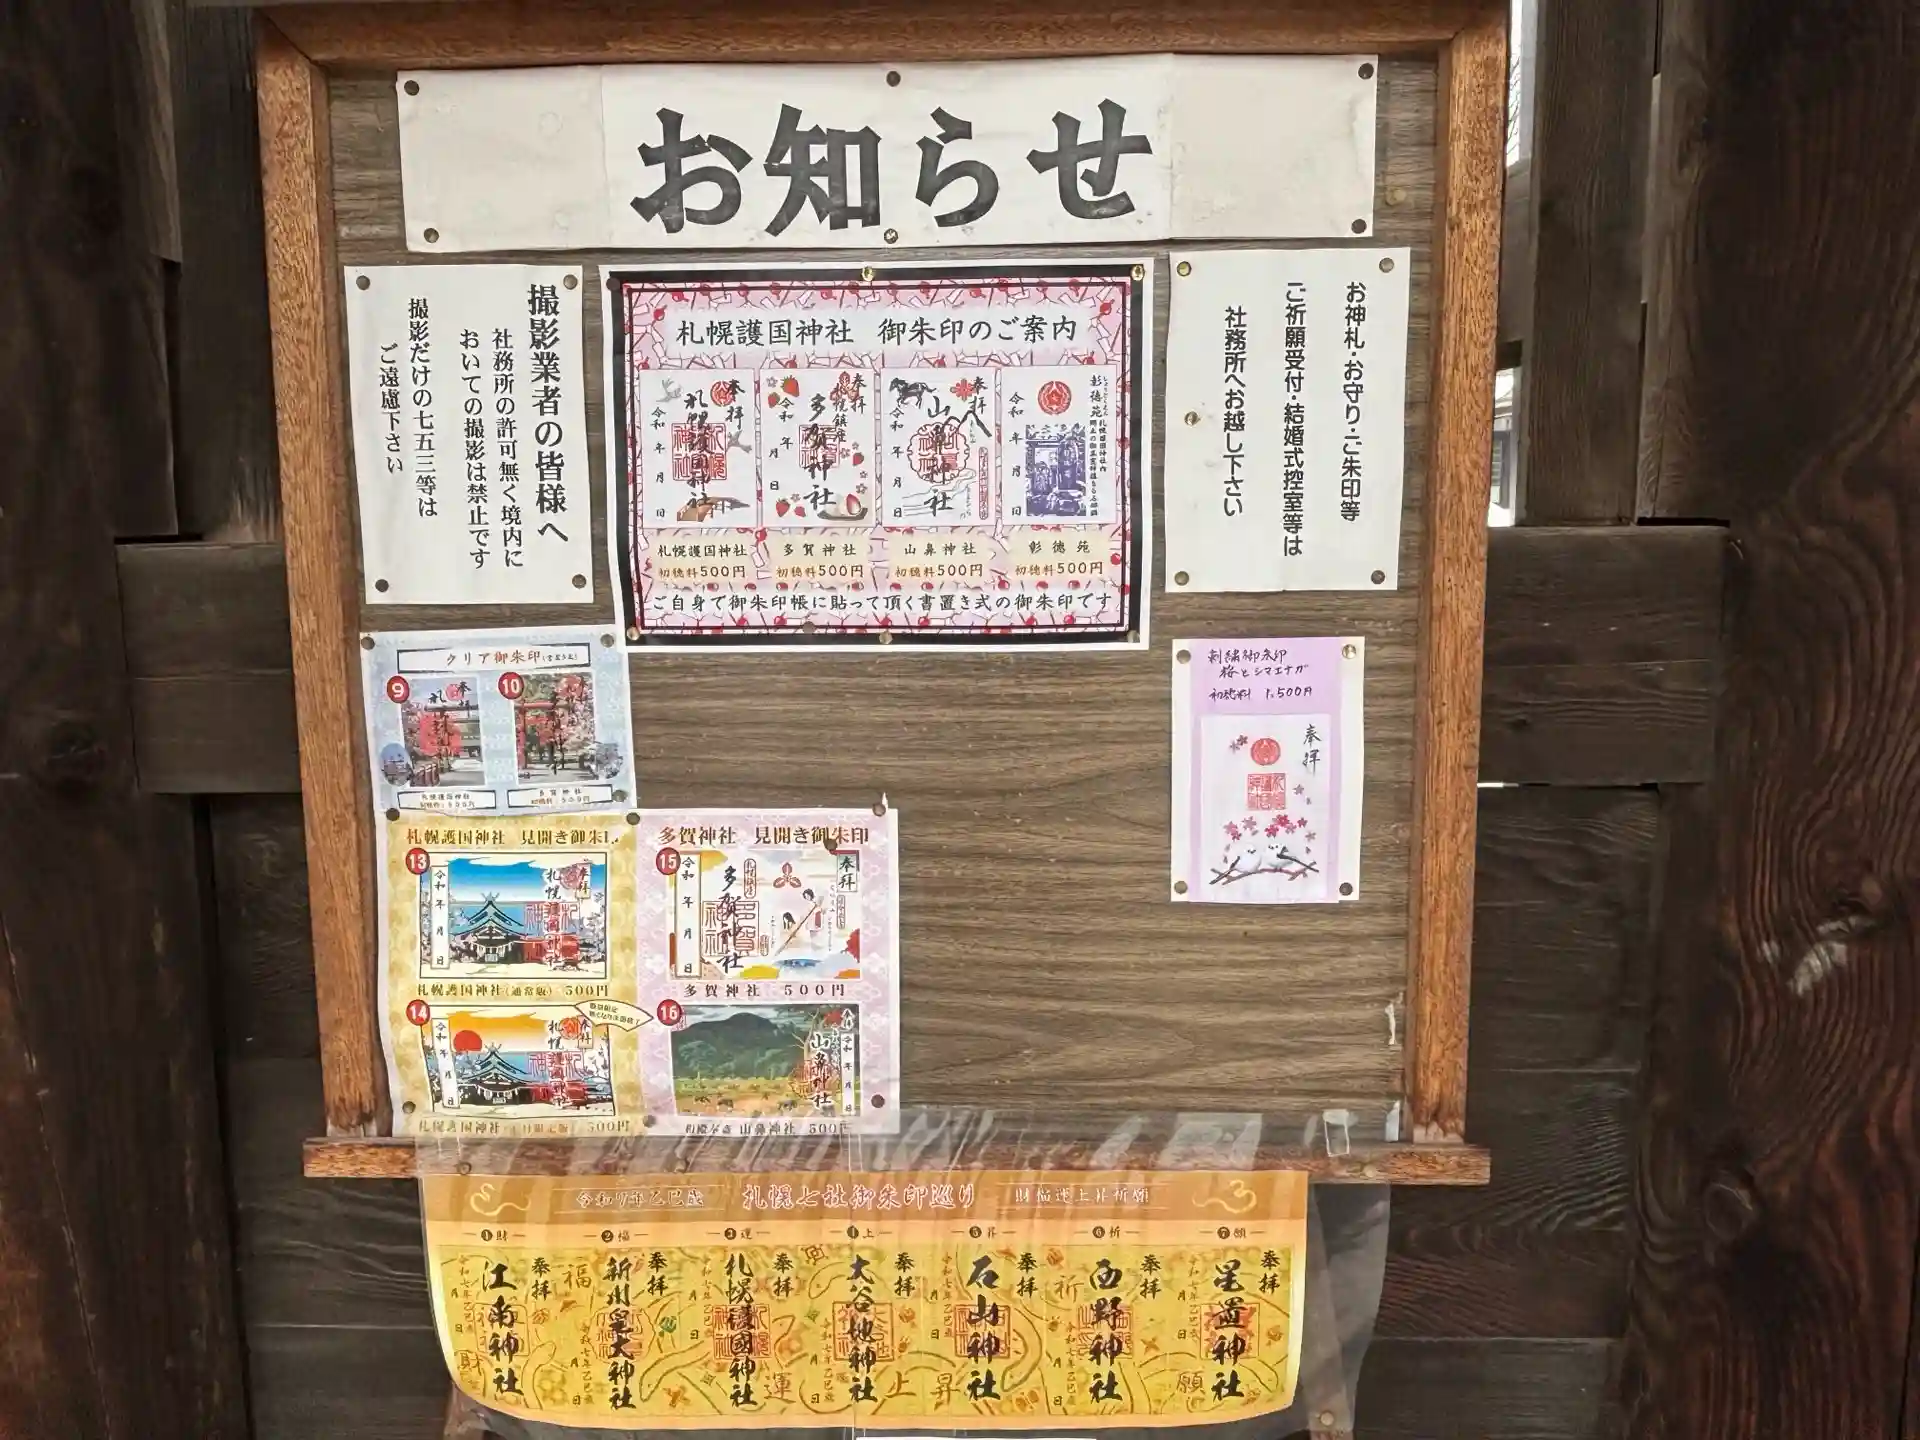 お知らせ
撮影業者の皆様へ
社務所の許可無く境内に
おいての撮影は禁止です
撮影だけの七五三等は
ご遠慮下さい
札幌護国神社 御朱印のご案内
奉拝
札幌護国神社
令和 年 月 日
奉拝
札幌鎮座
多賀神社
令和 年 月 日
奉拝
山鼻神社
令和 年 月 日
彰徳苑
令和 年 月 日
札幌護国神社
初穂料500円
多賀神社
初穂料500円
山鼻神社
初穂料500円
彰徳苑
初穂料500円
ご自身で御朱印帳に貼って頂く書置き式の御朱印です
お神札・お守り・ご朱印等
ご祈願受付・結婚式控室等は
社務所へお越し下さい
クリア御朱印
9
奉拝
10
札幌護国神社
多賀神社
刺繍御朱印
桜とシマエナガ
初穂料 1,500円
奉拝
札幌護国神社 見開き御朱
13
奉拝
札幌護國神社
令和 年 月 日
札幌護国神社(通常版) 500円
14
奉拝
札幌護國神社
令和 年 月 日
500円
多賀神社 見開き御朱印
15
奉拝
多賀神社
令和 年 月 日
多賀神社 500円
16
山鼻神社
令和 年 月 日
山鼻神社 500円
令和7年乙巳歳 札幌七社御朱印巡り 財福運上昇祈願
❶財
❷福
❸運
❹上
❺昇
❻祈
❼願
奉拝
江南神社
令和七年乙巳歳 月 日
財
奉拝
新川皇大神社
令和七年乙巳歳 月 日
福
奉拝
札幌護國神社
令和七年乙巳歳 月 日
運
奉拝
大谷地神社
令和七年乙巳歳 月 日
上
奉拝
石山神社
令和七年乙巳歳 月 日
昇
奉拝
西野神社
令和七年乙巳歳 月 日
祈
奉拝
星置神社
令和七年乙巳歳 月 日
願